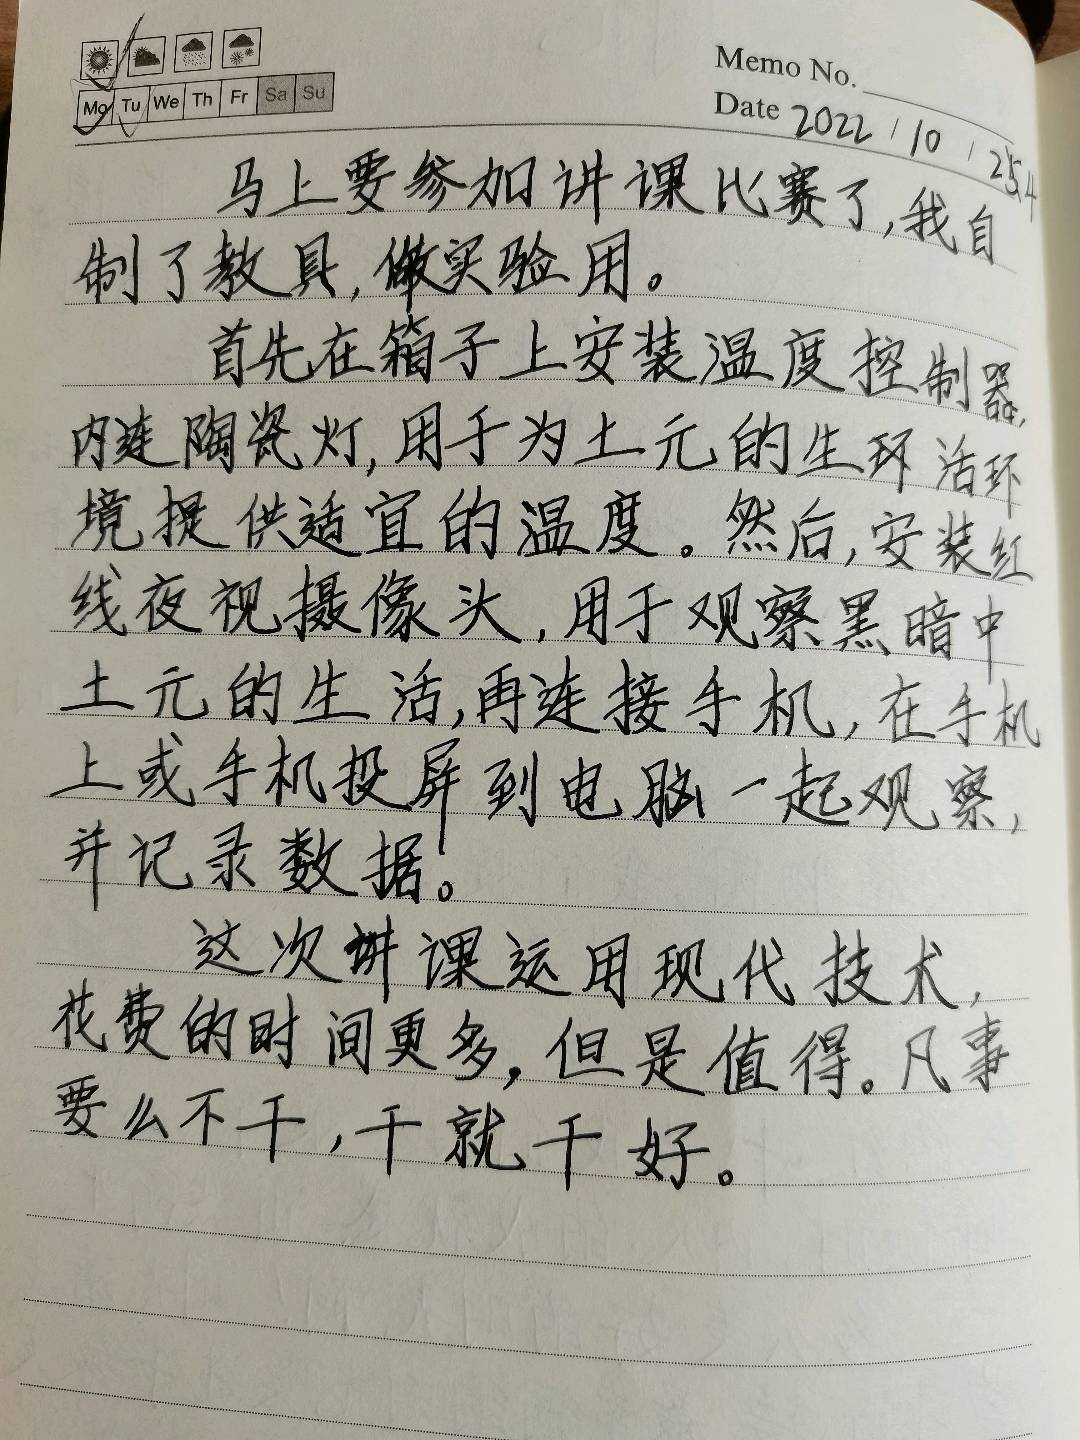 Mo Tu We Th Fr Sa Su
Memo No.
Date 2022 / 10 /
马上要参加讲课比赛了,我自
制了教具,做实验用。
首先在箱子上安装温度控制器,
内连陶瓷灯,用于为土元的生环活环
境提供适宜的温度。然后,安装红
线夜视摄像头,用于观察黑暗中
土元的生活,再连接手机,在手机
上或手机投屏到电脑一起观察,
并记录数据。
这次讲课运用现代技术,
花费的时间更多,但是值得。凡事
要么不干,干就干好。